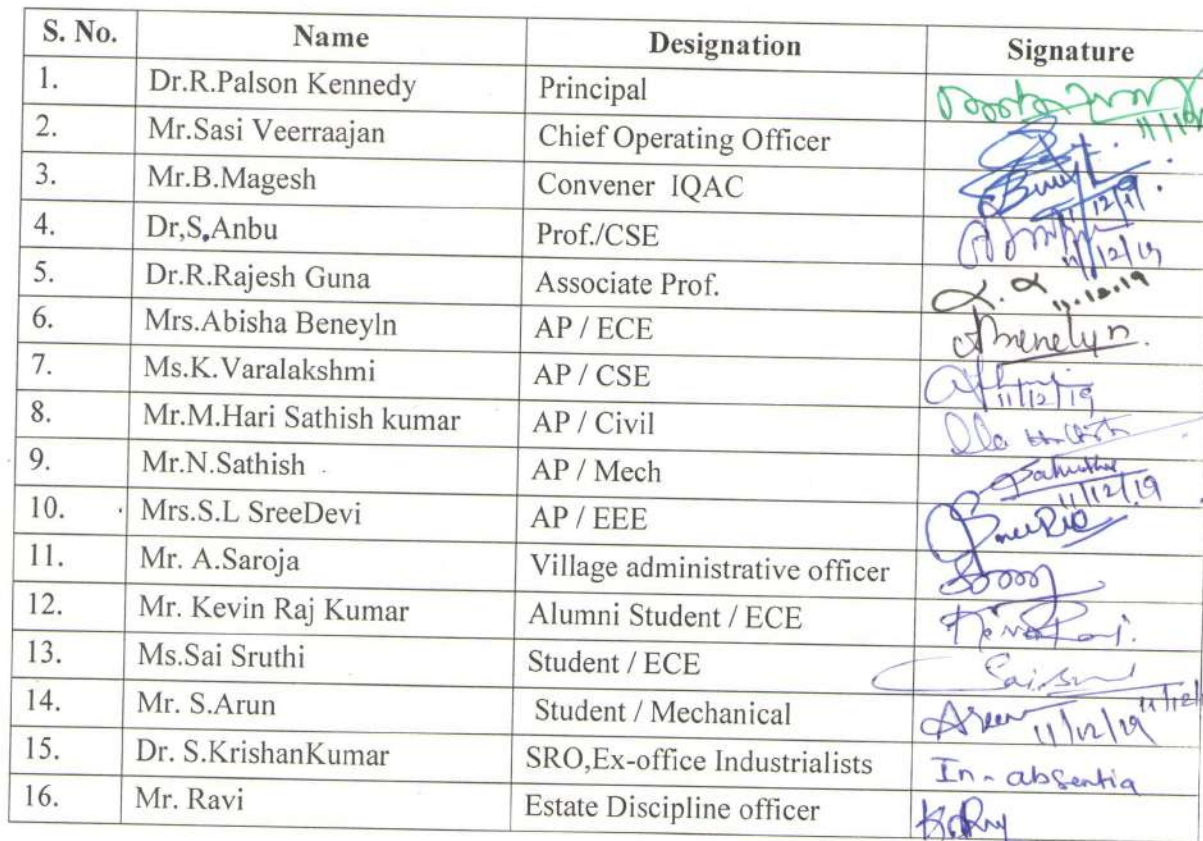 S. No. Name Designation Signature
1. Dr.R.Palson Kennedy Principal
2. Mr.Sasi Veerraajan Chief Operating Officer
3. Mr.B.Magesh Convener IQAC 11/12/19.
4. Dr,S.Anbu Prof./CSE 11/12/19
5. Dr.R.Rajesh Guna Associate Prof. 11.12.19
6. Mrs.Abisha Beneyln AP / ECE
7. Ms.K.Varalakshmi AP / CSE 11/12/19
8. Mr.M.Hari Sathish kumar AP / Civil
9. Mr.N.Sathish AP / Mech 11/12/19
10. Mrs.S.L SreeDevi AP / EEE
11. Mr. A.Saroja Village administrative officer
12. Mr. Kevin Raj Kumar Alumni Student / ECE
13. Ms.Sai Sruthi Student / ECE
14. Mr. S.Arun Student / Mechanical 11/12/19
15. Dr. S.KrishanKumar SRO,Ex-office Industrialists In-absentia
16. Mr. Ravi Estate Discipline officer